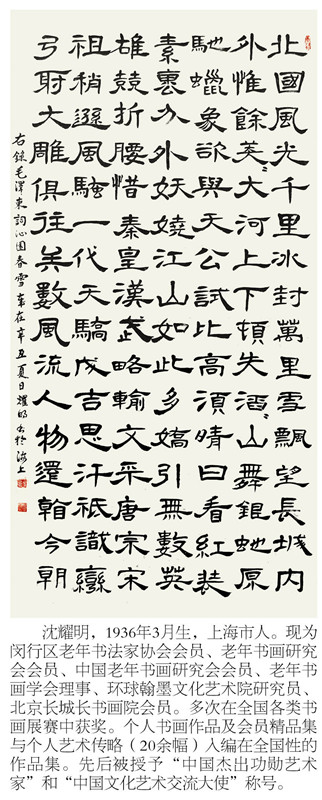 北國風光千里冰封萬里雪飄望長城內
外惟餘莽〻大河上下頓失滔〻山舞銀蛇原
馳蠟象欲與天公試比高須晴日看紅裝
素裹分外妖嬈江山如此多嬌引無數英
雄競折腰惜秦皇漢武略輸文采唐宗宋
祖稍遜風騷一代天驕成吉思汗祇識彎
弓射大雕俱往矣數風流人物還看今朝
右錄毛澤東詞沁園春雪歲在辛丑夏日耀明书於海上
沈耀明，1936年3月生，上海市人。现为
闵行区老年书法家协会会员、老年书画研究
会会员、中国老年书画研究会会员、老年书
画学会理事、环球翰墨文化艺术院研究员、
北京长城长书画院会员。多次在全国各类书
画展赛中获奖。个人书画作品及会员精品集
与个人艺术传略（20余幅）入编在全国性的
作品集。先后被授予“中国杰出功勋艺术
家”和“中国文化艺术交流大使”称号。